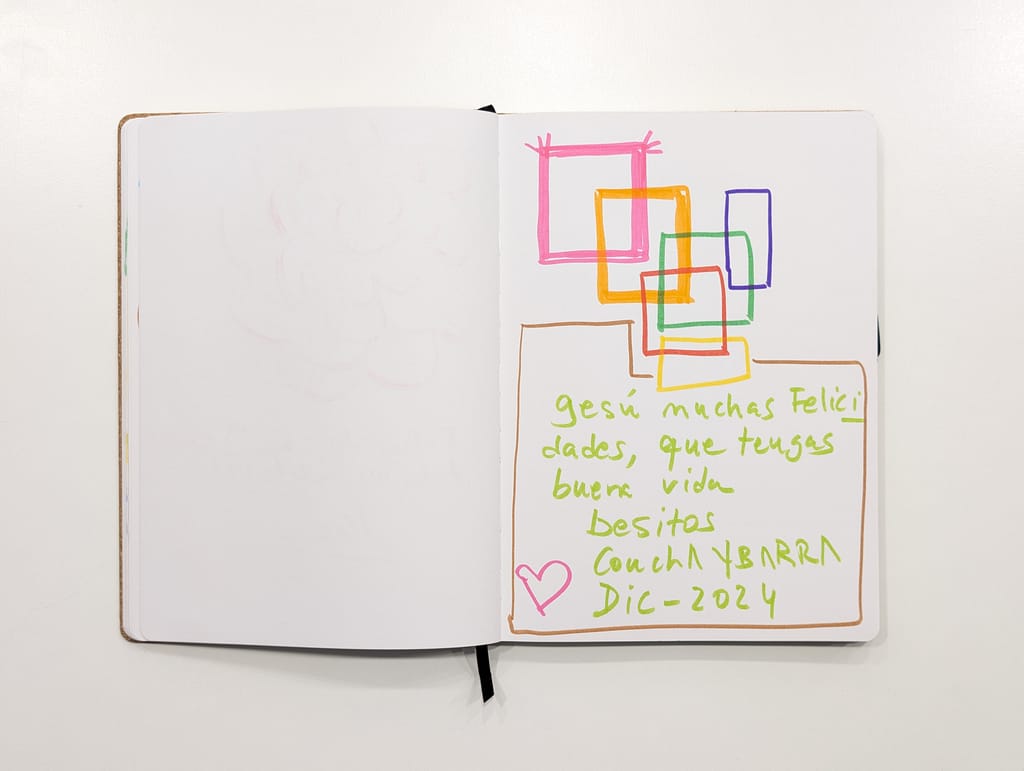 gesú muchas Felici
dades, que tengas
buena vida
besitos
ConchA YBARRA
Dic-2024